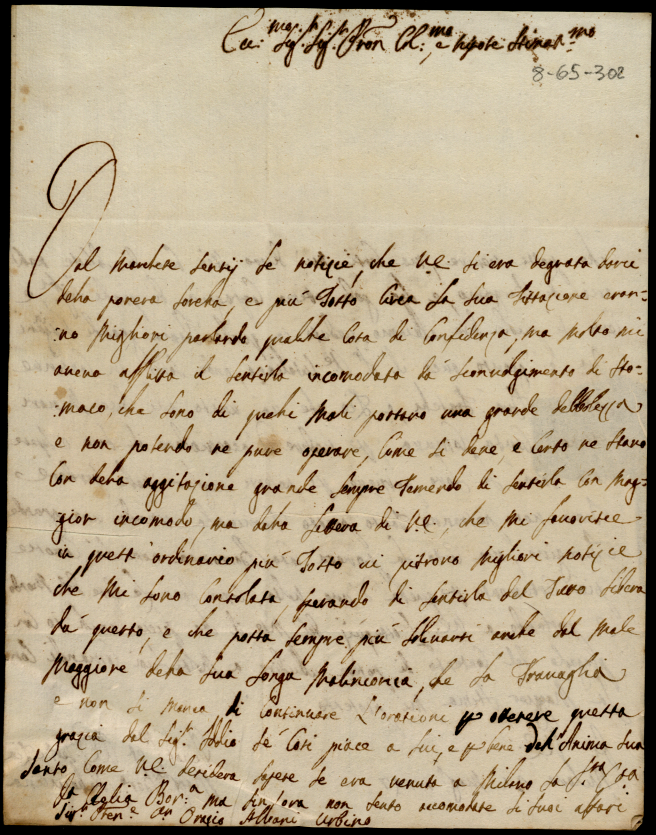 Ecc:mo Sig.r Sig.r Pron Col:mo e Nipote Stimat:mo
8-65-302
Dal Marchese Sentij le notizie, che V.E. si era degnata darci
della povera sorella, e più tosto circa la sua fissazione eran=
=no migliori parlando qualche cosa di confidenza, ma molto mi
aveva afflitta il sentirla incomodata da sconvolgimento di sto=
=maco, che sono di quelli mali portano una grande debolezza
e non potendo ne pure operare, come si deve e certo ne stavo
con della aggitazione grande sempre temendo di sentirla con mag=
=gior incomodo, ma dalla lettera di V.E. che mi favorisce
in quest' ordinario più tosto vi trovo migliori notizie
che mi sono consolata, sperando di sentirla del tutto libera
da questo, e che possa sempre più solevarsi anche dal male
maggiore della sua longa malinconia, che la travaglia
e non si manca di continuare l'orazioni per ottenere questa
grazia dal Sig.r Iddio se così piace a lui, e per bene dell'Anima sua
tanto, come V.E. desidera sapere se era venuta a Milano la
Clelia Bor.a ma sin'ora non sento accomodate si suoi affari
Orazio Albani Urbino